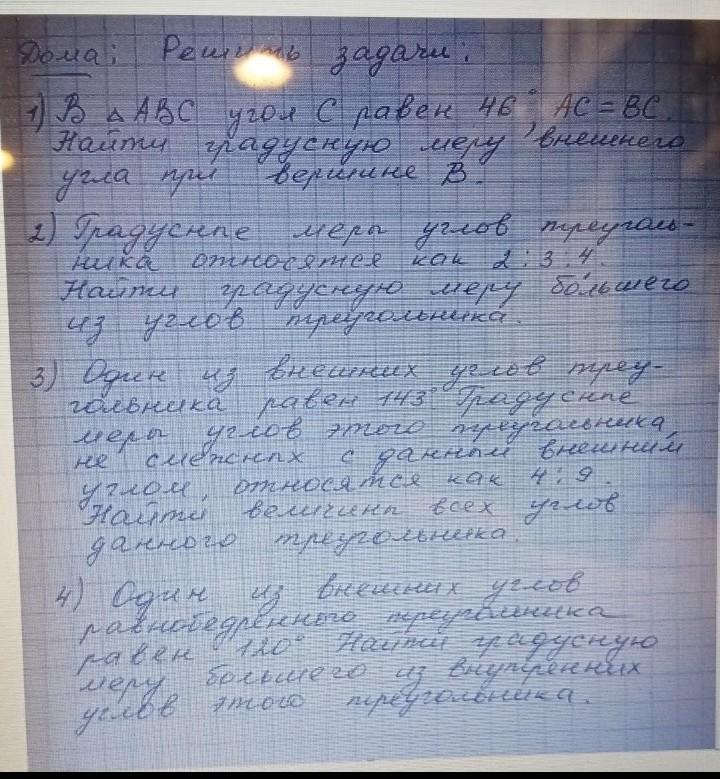 Дома: Решить задачи:
1) В △ ABC угол C равен 46°, AC = BC.
Найти градусную меру внешнего
угла при вершине B.
2) Градусные меры углов треуголь-
ника относятся как 2:3:4.
Найти градусную меру бо́льшего
из углов треугольника.
3) Один из внешних углов треу-
гольника равен 143° Градусные
меры углов этого треугольника,
не смежных с данным внешним
углом, относятся как 4:9.
Найти величины всех углов
данного треугольника.
4) Один из внешних углов
равнобедренного треугольника
равен 120° Найти градусную
меру большего из внутренних
углов этого треугольника.